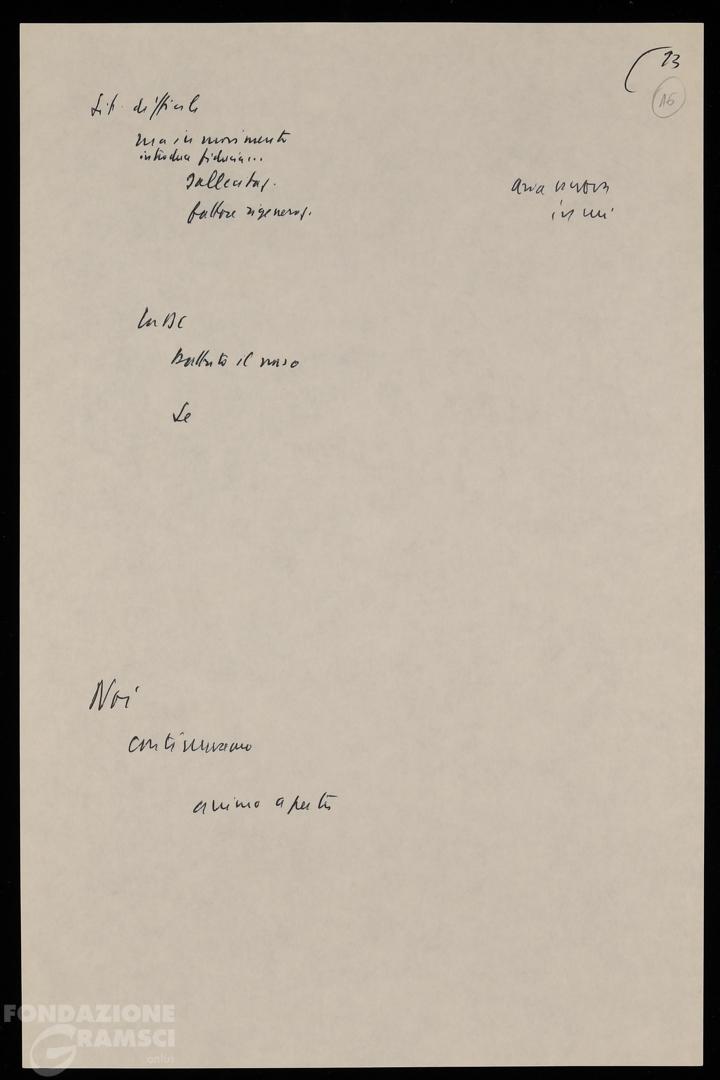 13
16
Sit. difficile
ma in movimento
introduce fiducia...
sollecitaz.
fattore rigeneraz.
aria nuova
in
La DC
Battuto il naso
Se
Noi
continueremo
animo aperto
FONDAZIONE
GRAMSCI
onlus